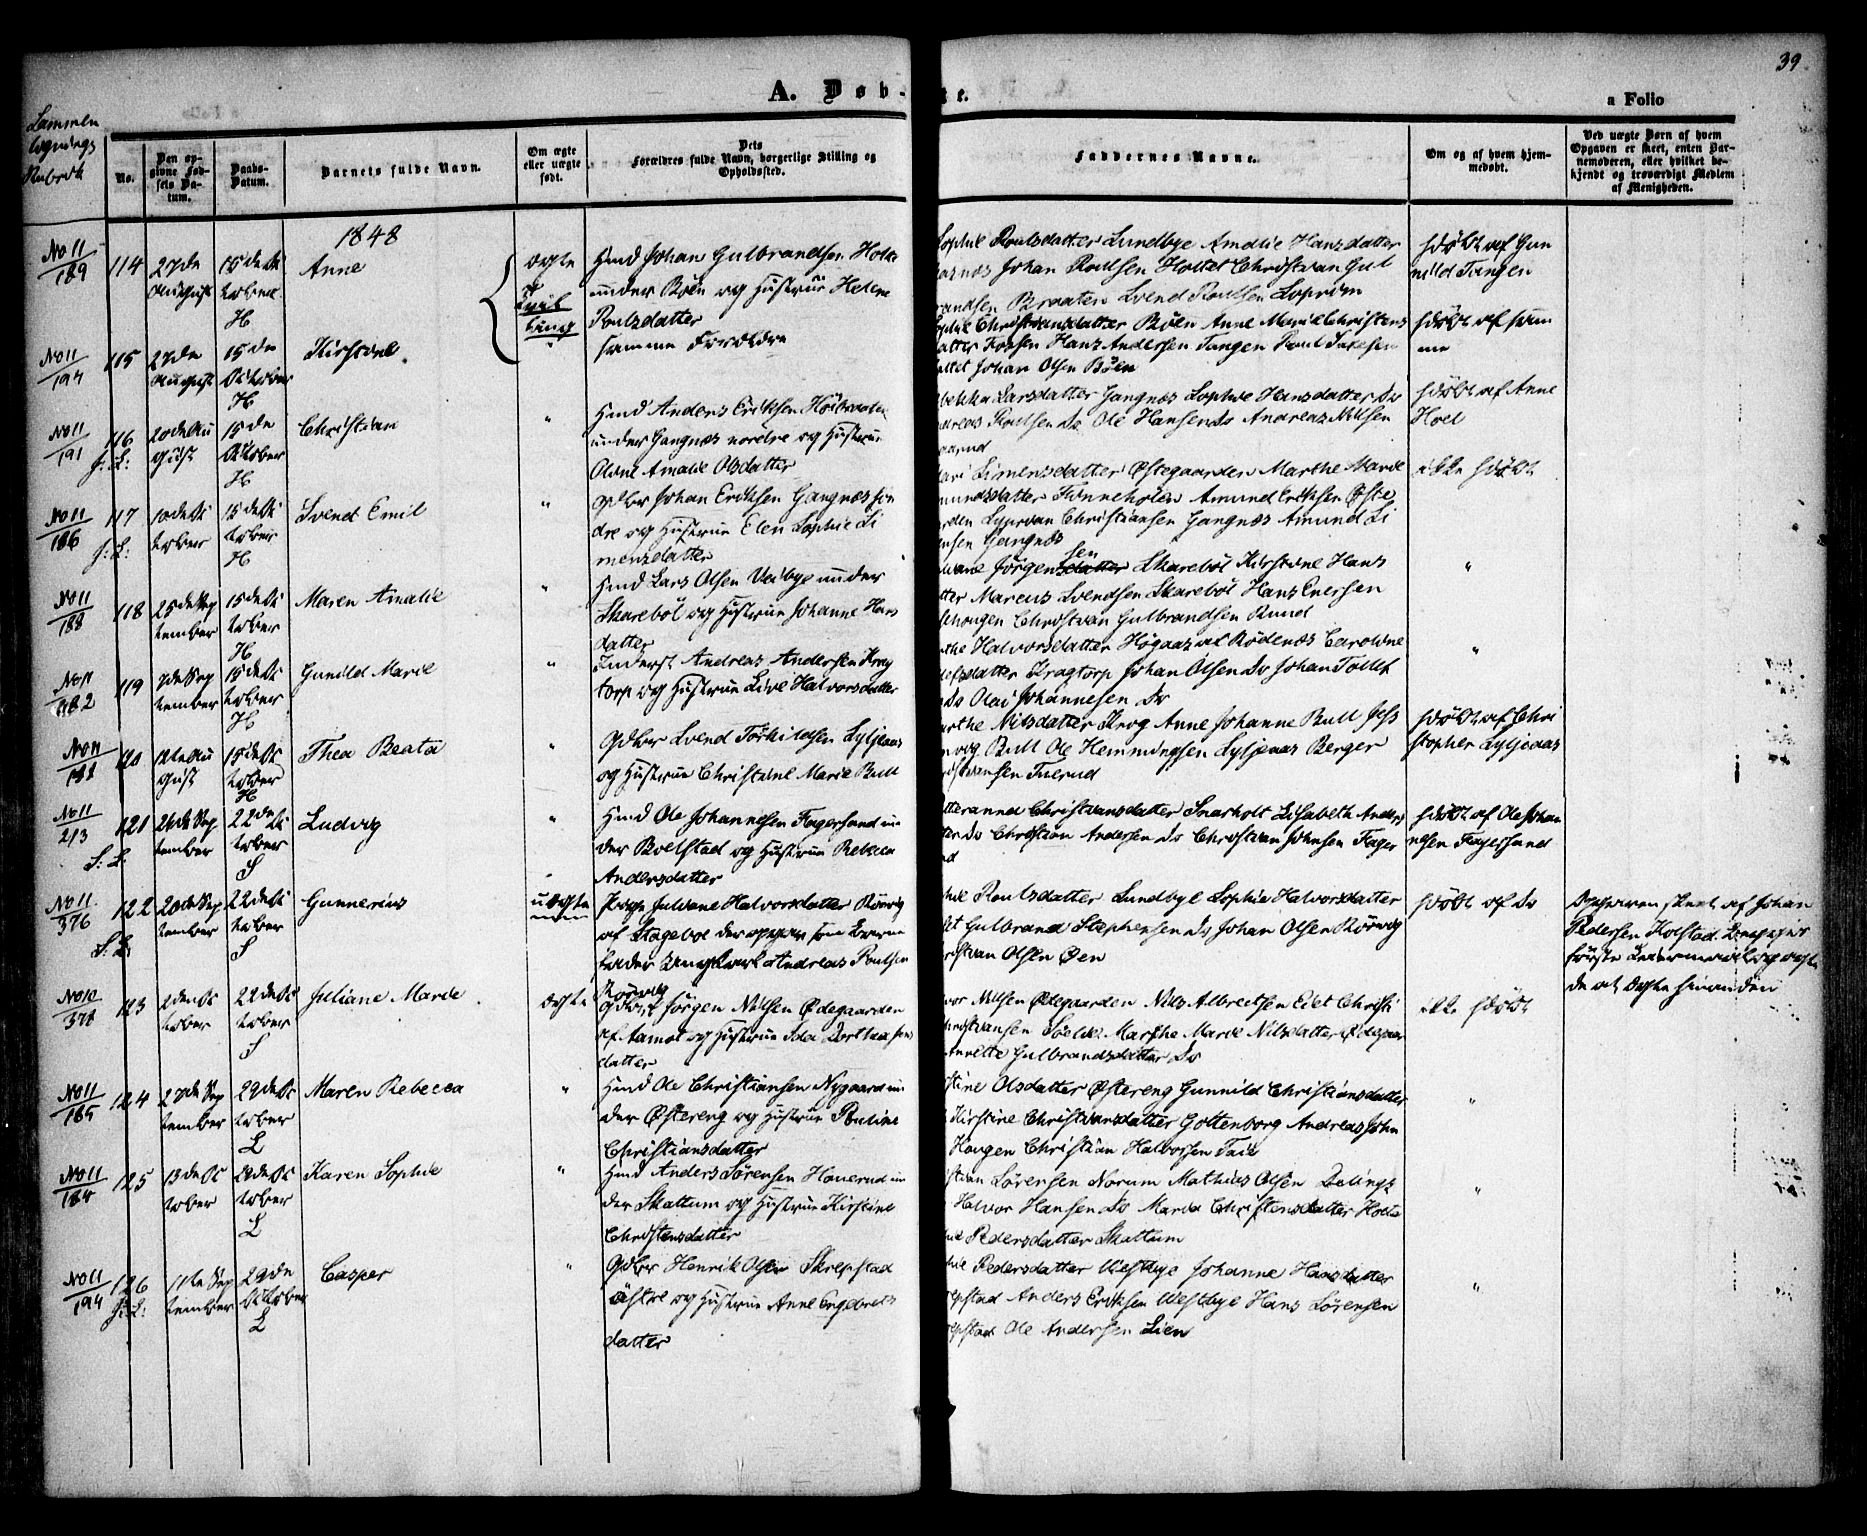 39
A. Døb-
te.
a Folio
Sammen
lignings
Rubrik
No.
Den op-
givne Fød-
sels Da-
tum.
Daabs-
Datum.
Barnets fulde Navn.
Om ægte
eller uægte
født.
Dets
Forældres fulde Navn, borgerlige Stilling og
Opholdssted.
Faddernes Navne.
Om og af hvem hjem-
medøbt.
Ved uægte Børn af hvem
Opgaven er skeet, enten Bar-
nemoderen, eller hvilket be-
kjendt og troværdigt Medlem
af Menigheden.
1848
No 11
189
114
27de
August
15de Oc
tober
H
Anne
ægte
Tvil
ling
Husmd Johan Gulbrandsen Holte
under Böen og Hustrue Helene
Poulsdatter
Sophie Poulsdatter Lundbye Amalie Hansdatter
Johan Poulsen Holtet Christian Gul
brandsen Braaten Svend Poulsen
hjdöbt af Gun
nild Tangen
No 11
194
115
27de
August
15de
October
H
Kirstine
samme Forældre
Sophie Christiansdatter Böen Anne Marie Christens
datter Hans Andersen Tangen Poul
Johan Olsen Böen
hjdöbt af sam
me
No 11
191
116
20de Au
gust
15de
October
H
Christian
"
Husmd Anders Eriksen Höibraaten
under Gangnæs nordre og Hustrue
Oline Amalie Olsdatter
Larsdatter Gangnæs Sophie Hansdatter Do
Andreas Poulsen Do Ole Hansen Do Andreas Nilsen
hjdöbt af Anne
Hoel
No 11
186
117
10de Oc
tober
15de Oc
tober
H
Svend Emil
"
Gdbr Johan Eriksen Gangnæs sön
dre og Hustrue Elen Sophie Si
mensdatter
Simensdatter Östegaarden Marthe Marie
Amundsdatter Tinneholen Amund Eriksen Öste
gaarden Christiansen Gangnæs Amund Si
mensen Gangnæs
ikke hjdöbt
No 11
188
118
25de Sep
tember
15de Oc
tober
H
Maren Amalie
"
Husmd Lars Olsen Veibye under
Skareböl og Hustrue Johanne Hans
datter
Jörgensen Skareböl Kirstine Hans
datter Marcus Svendsen Skareböl Hans Enersen
Christian Gulbrandsen Ruud
"
No 11
182
119
7de Sep
tember
15de Oc
tober
H
Gunild Marie
"
Inderst Andreas Andersen Krag
torp og Hustrue Live Halvorsdatter
Halvorsdatter Högaas af Rödenæs Caroline
Kragtorp Johan Olsen Do Johan Tollef
sen Do Olai Johannesen Do
"
No 11
181
120
12te Au
gust
15de Oc
tober
H
Thea Beata
"
Gdbr Svend Torkildsen Lysjeaas
og Hustrue Christine Marie Bull
Marthe Nilsdatter Krog Anne Johanne Bull Jess
Bull Ole Hemmingsen Lysjeaas Berger
Christiansen Tuerud
hjdöbt af Chri
stopher Lysjeaas
No 11
213
121
S: L.
21de Sep
tember
22de Oc
tober
S
Ludvig
"
Husmd Ole Johannesen Fagersand un
der Boelstad og Hustrue Rebecca
Andersdatter
Christiansdatter Snarholt Lisabeth Anders
datter Do Christian Andersen Do Christian Johnsen Fager
sand
hjdöbt af Ole Johan
nesen Fagersand
No 11
376
122
S: L
20de Sep
tember
22de Oc
tober
S
Gunnerius
uægte
Pige Juliane Halvorsdatter Rörvig
af Stageboe der opgav som Barne
fader Ungkarl Andreas Poulsen
Rörvig
Poulsdatter Lundbye Sophie Halvorsdatter
Gulbrand Stephensen Do Johan Olsen Rörvig
Christian Olsen Öen
hjdöbt af Do
Opgaven skeet af Johan
Pedersen Kolstad. Begges
förste Leiermaal og agte
de at ægte hinanden
No 10
378
123
2den Oc
tober
22de Oc
tober
S
Juliane Marie
ægte
Gdbr Jörgen Nilsen Ödegaarden
af Aamot og Hustrue Ida Dorthea
datter
Halvor Nilsen Ödegaarden Nils Albretsen Eiet Christi
Christiansen Marthe Marie Nilsdatter Ödegaar
Annette Gulbrandsdatter Do
ikke hjdöbt
No 11
185
124
27de Sep
tember
29de Oc
tober
L
Maren Rebecca
"
Husmd Ole Christiansen Nygaard un
der Östereng og Hustrue Pauline
Christiansdatter
Kirstine Olsdatter Östereng Gunnild Christiansdatter
Kirstine Christiansdatter Gottenborg Andreas John
Haugen Christian Halvorsen Taie
"
No 11
184
125
13de Oc
tober
29de Oc
tober
L
Karen Sophie
"
Husmd Anders Sörensen Houerud un
der Skattum og Hustrue Kirstine
Christensdatter
Christian Sörensen Norum Mathias Olsen
Halvor Hansen Do Marie Christensdatter Holte
Pedersdatter Skattum
"
No 11
194
126
H: L:
11te Sep
tember
29de
October
L
Casper
"
Gdbr Henrik Olsen Skrepstad
östre og Hustrue Anne Engebrets
datter
Pedersdatter Westbye Johanne Hansdatter
Skrepstad Anders Eriksen Westbye Hans Sörensen
Skrepstad Ole Andersen Lien
"